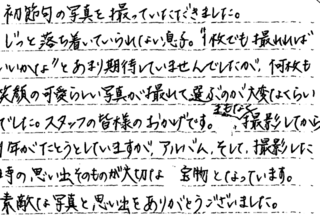 初節句の写真を撮っていただきました。
じっと落ち着いていられない息子。“1枚でも撮れれば
いいかな”とあまり期待していませんでしたが、何枚も
笑顔の可愛らしい写真が撮れて選ぶのが大変なくらい
でした。スタッフの皆様のおかげです。まもなく、撮影してから
1年がたとうとしていますが、アルバム、そして、撮影した
時の思い出そのものが大切な 宝物となっています。
素敵な写真と思い出をありがとうございました。